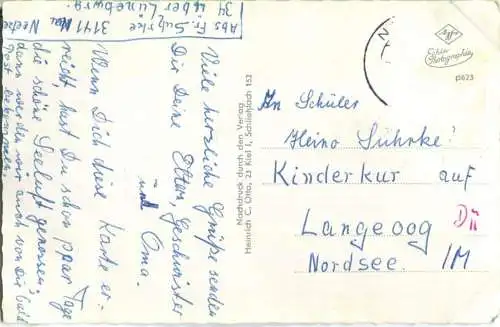 Abs. Fr. Suhrke 3141 Neetze
134 über Lüneburg.
Viele herzliche Grüße senden
Dir Deine Eltern, Geschwister
und Oma.
Wenn Dich diese Karte er-
reicht hast Du schon paar Tage
die schöne Seeluft genossen,
dann werden wir auch von Dir bald
Post bekommen.
Nachdruck durch den Verlag
Heinrich C. Otto, 23 Kiel 1, Schließfach 152
Agfa
Echte
Photographie
p623
An Schüler
Heino Suhrke!
Kinderkur auf
Langeoog
Nordsee.